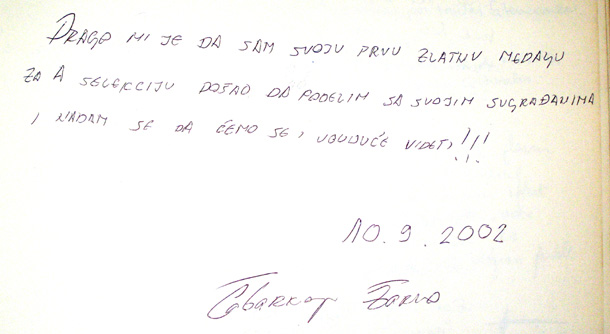 DRAGO MI JE DA SAM SVOJU PRVU ZLATNU MEDALJU
ZA A SELEKCIJU DOŠAO DA PODELIM SA SVOJIM SUGRAĐANIMA
I NADAM SE DA ĆEMO SE I UBUDUĆE VIDETI!!!
10. 9. 2002
Čabarkapa Žarko